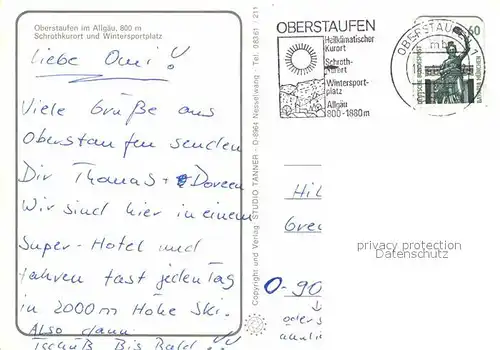 Oberstaufen im Allgäu, 800 m
Schrothkurort und Wintersportplatz
Liebe Omi!
Viele Grüße aus
Oberstaufen senden
Dir Thomas + Doreen
Wir sind hier in einem
Super-Hotel und
fahren fast jeden Tag
in 2000m Höhe Ski.
Also dann
Tschüß Bis Bald
Copyright und Verlag: STUDIO TANNER - D-8964 Nesselwang - Tel. 08361 / 211
OBERSTAUFEN
Heilklimatischer
Kurort
Schroth-
kurort
Wintersport-
platz
Allgäu
800-1880m
OBERSTAUFEN 1
mb
60
DEUTSCHE BUNDESPOST
Hil
Gre
O-90
oder s
privacy protection
Datenschutz